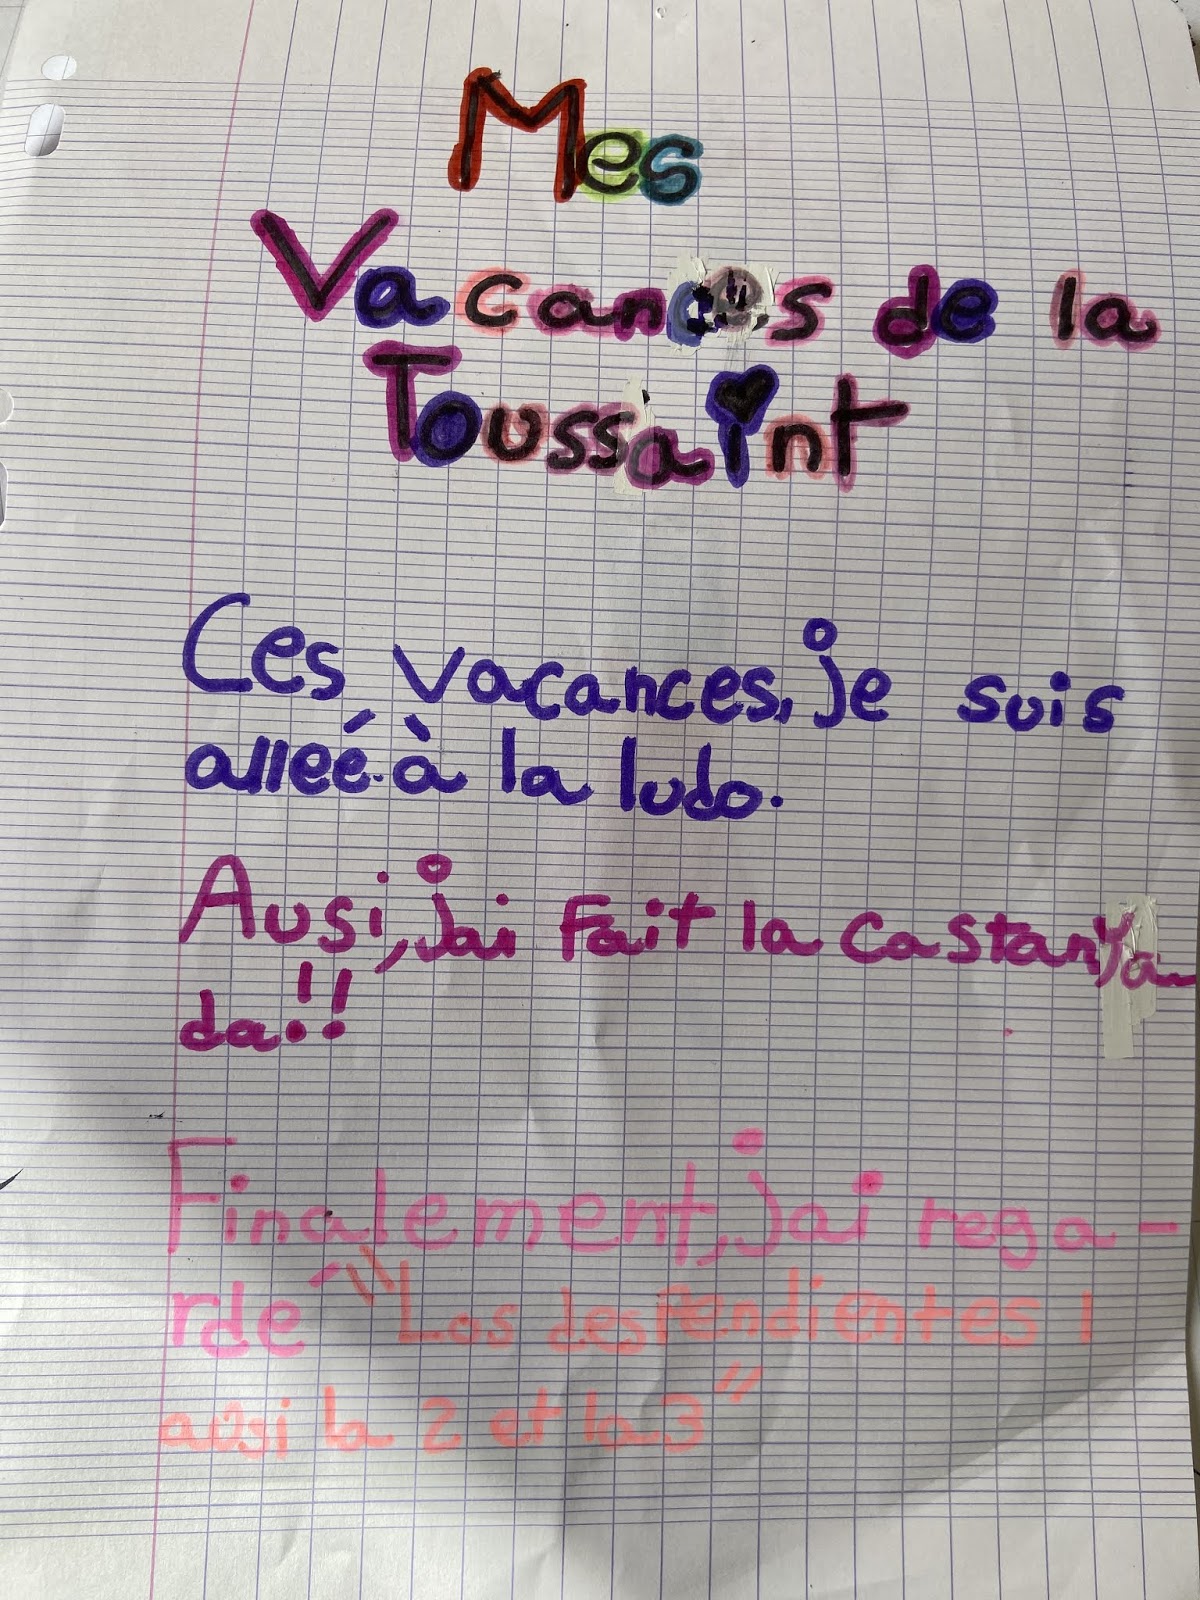 Mes
Vacances de la
Toussaint
Ces vacances, je suis
allée à la ludo.
Ausi, jai fait la castanya
da!!
Finalement, jai rega-
rdé "Los despendientes 1
ausi la 2 et la 3"